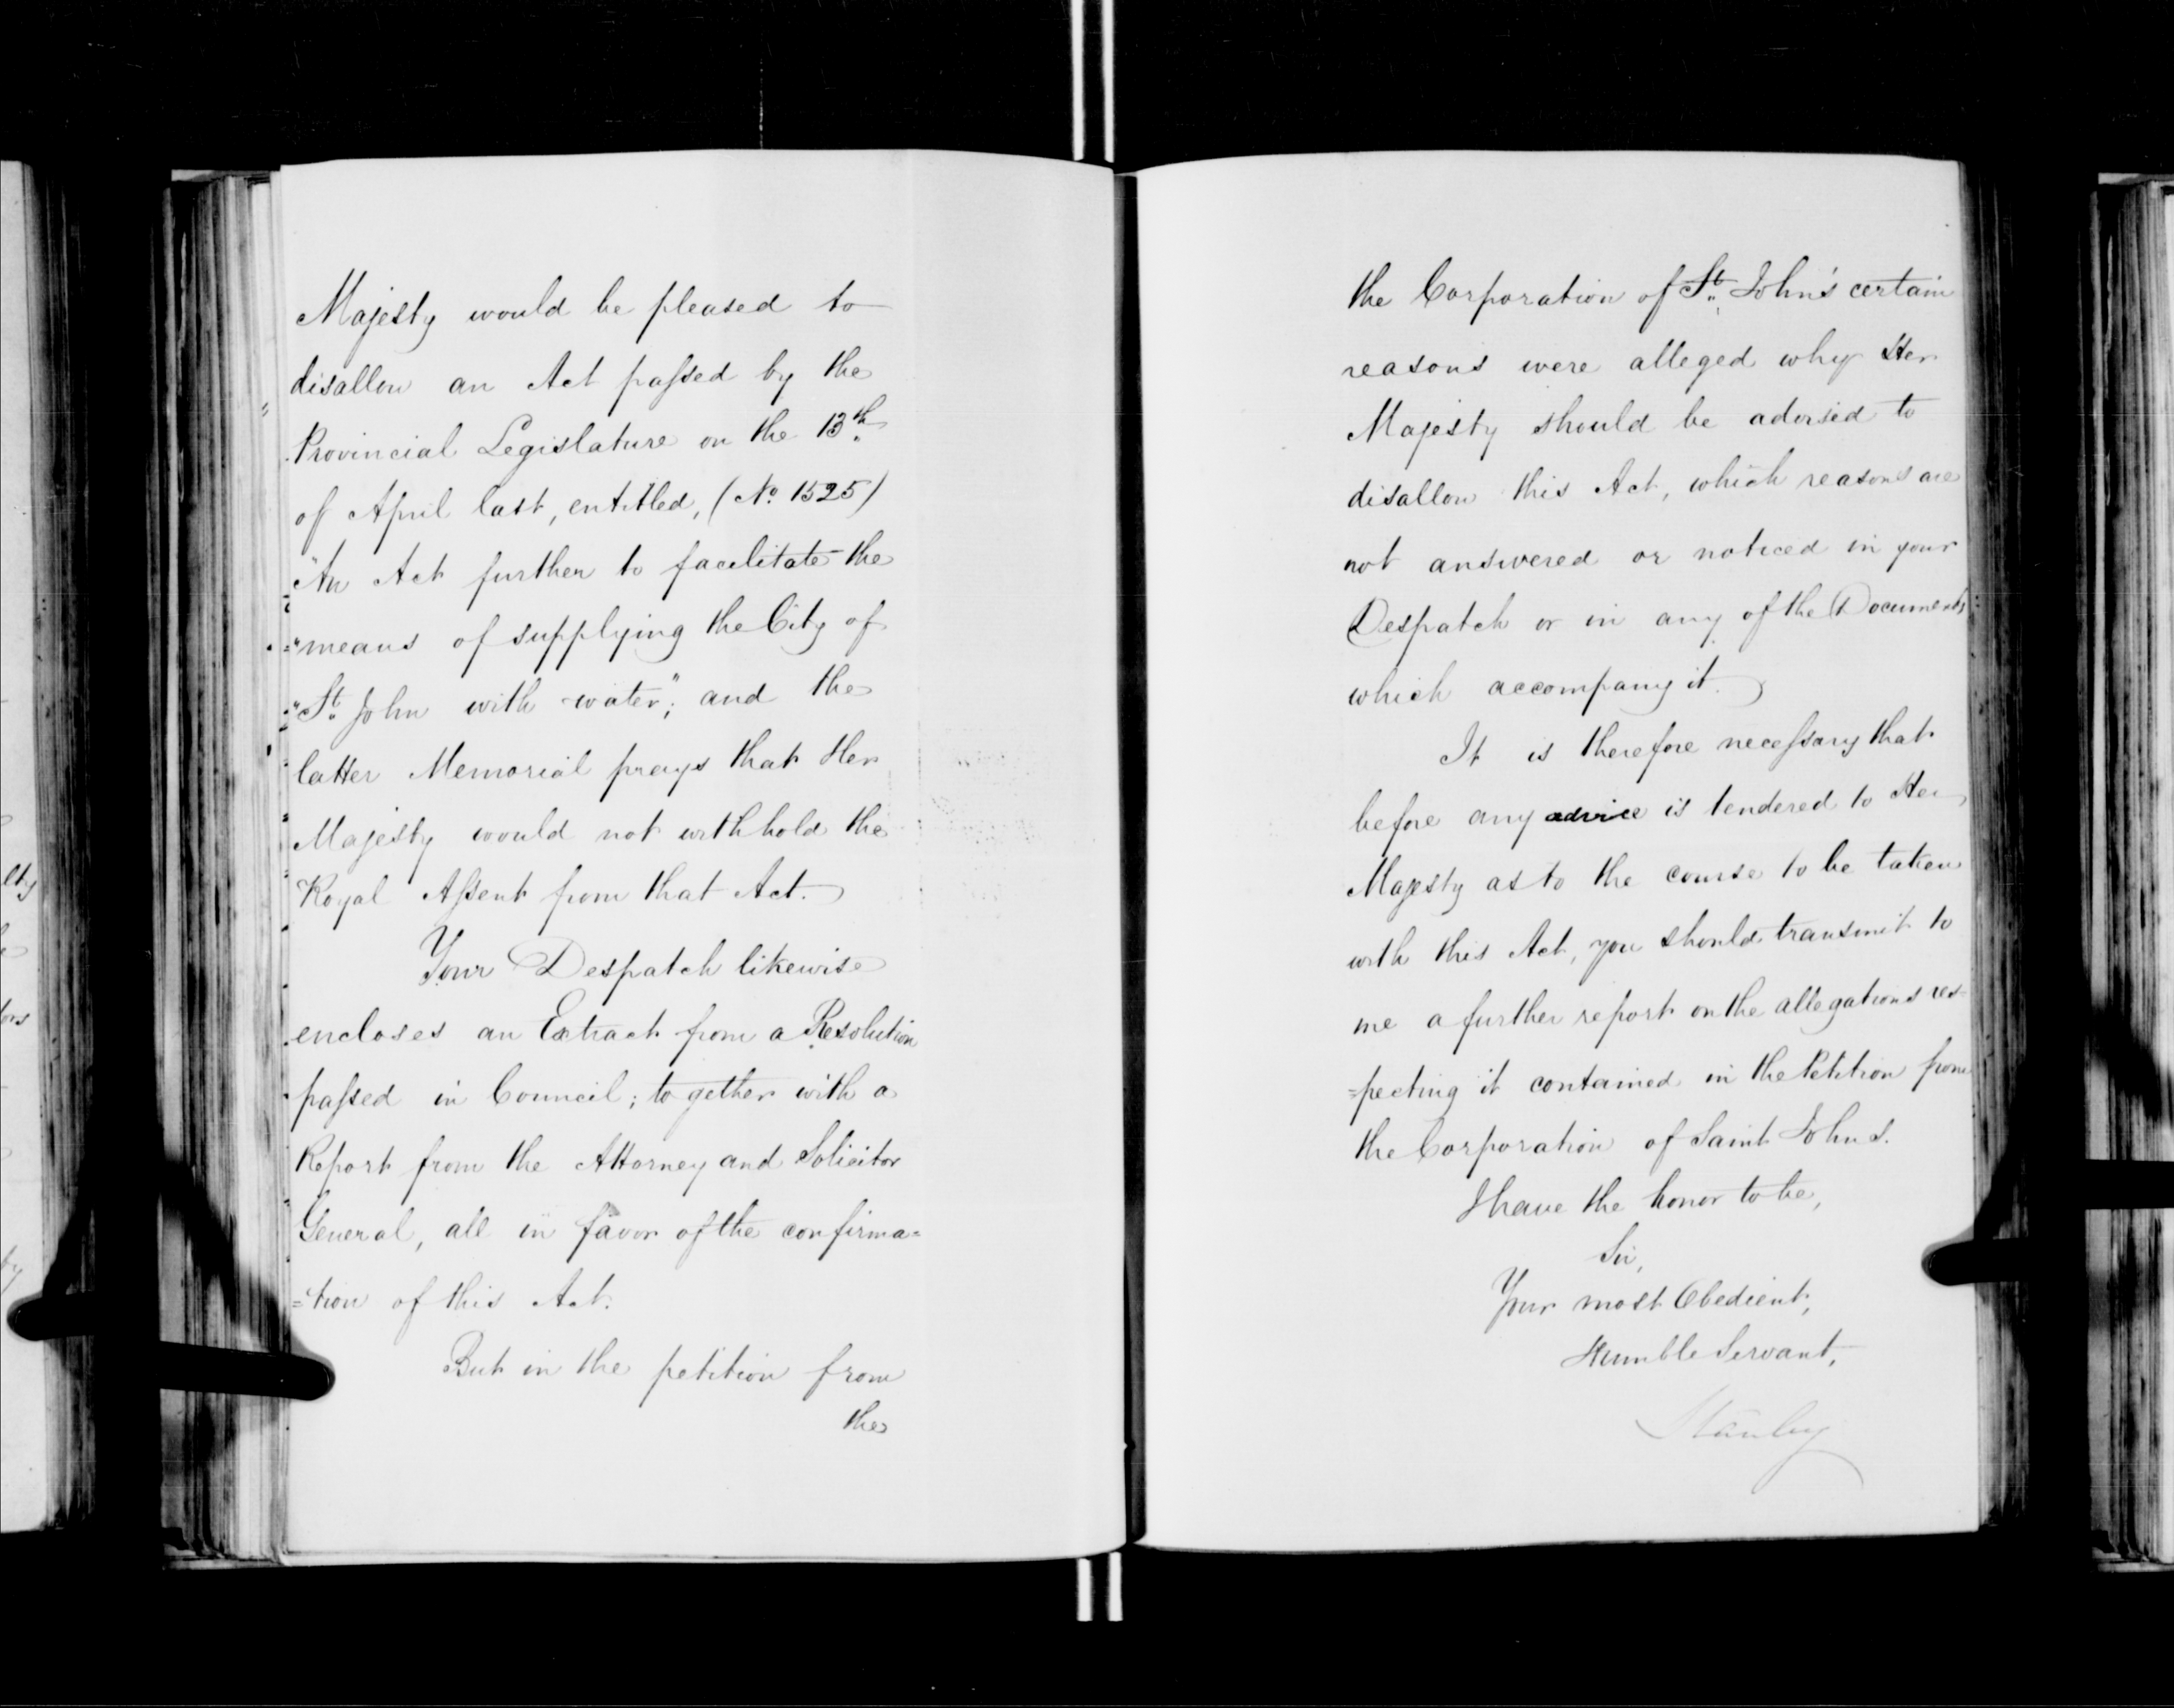 Majesty would be pleased to
disallow an Act passed by the
Provincial Legislature on the 13th
of April last, entitled, (No. 1525)
"An Act further to facilitate the
"means of supplying the City of
"St. John with water"; and the
latter Memorial prays that Her
Majesty would not withhold the
Royal Assent from that Act.
Your Despatch likewise
encloses an Extract from a Resolution
passed in Council; together with a
Report from the Attorney and Solicitor
General, all in favor of the confirma=
=tion of this Act.
But in the petition from
the
the Corporation of St. John's certain
reasons were alleged why Her
Majesty should be advised to
disallow this Act, which reasons are
not answered or noticed in your
Despatch or in any of the Documents
which accompany it.
It is therefore necessary that
before any advice is tendered to Her
Majesty as to the course to be taken
with this Act, you should transmit to
me a further report on the allegations res=
=pecting it contained in the Petition from
the Corporation of Saint Johns.
I have the honor to be,
Sir,
Your most Obedient,
Humble Servant,
Stanley